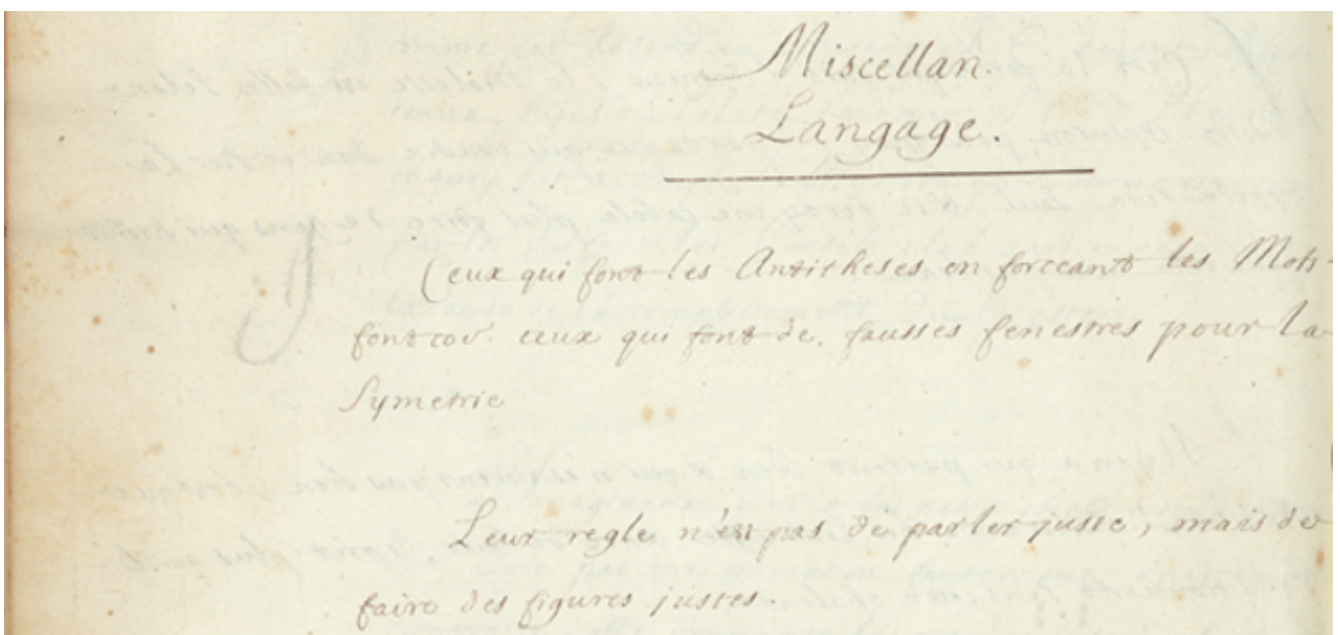 Miscellan.
Langage.
Ceux qui font les Antitheses en forceant les Mots
font coe. ceux qui font de fausses fenestres pour la
Symetrie
Leur regle n'est pas de parler juste, mais de
faire des figures justes.